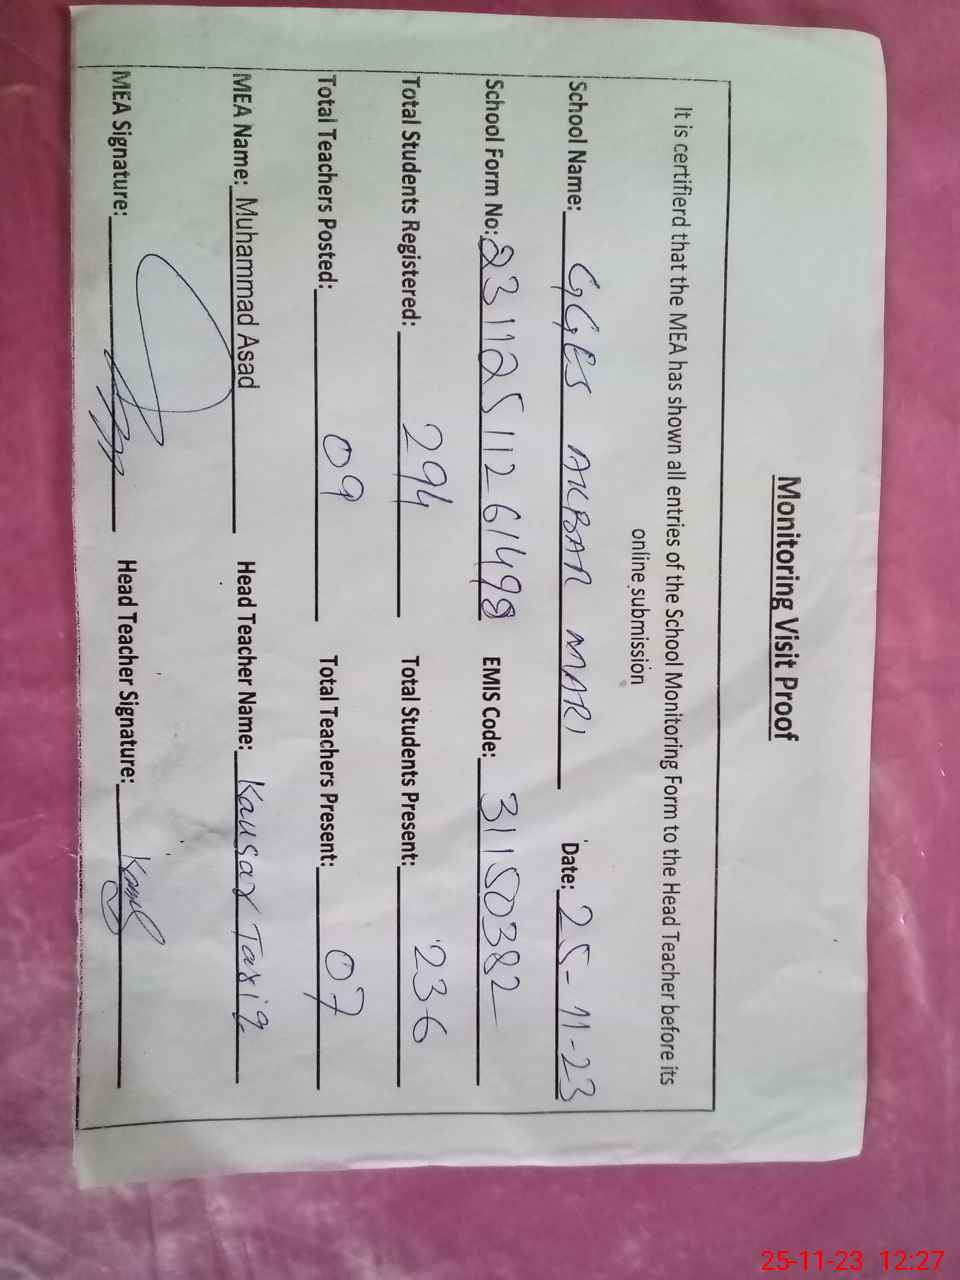 Monitoring Visit Proof
It is certifierd that the MEA has shown all entries of the School Monitoring Form to the Head Teacher before its
online submission
School Name: GGES AKBAR MARI Date: 25-11-23
School Form No: 23112511261498 EMIS Code: 31150382
Total Students Registered: 294 Total Students Present: 236
Total Teachers Posted: 09 Total Teachers Present: 07
MEA Name: Muhammad Asad Head Teacher Name: Kausar Tariq
MEA Signature: Head Teacher Signature:
25-11-23 12:27